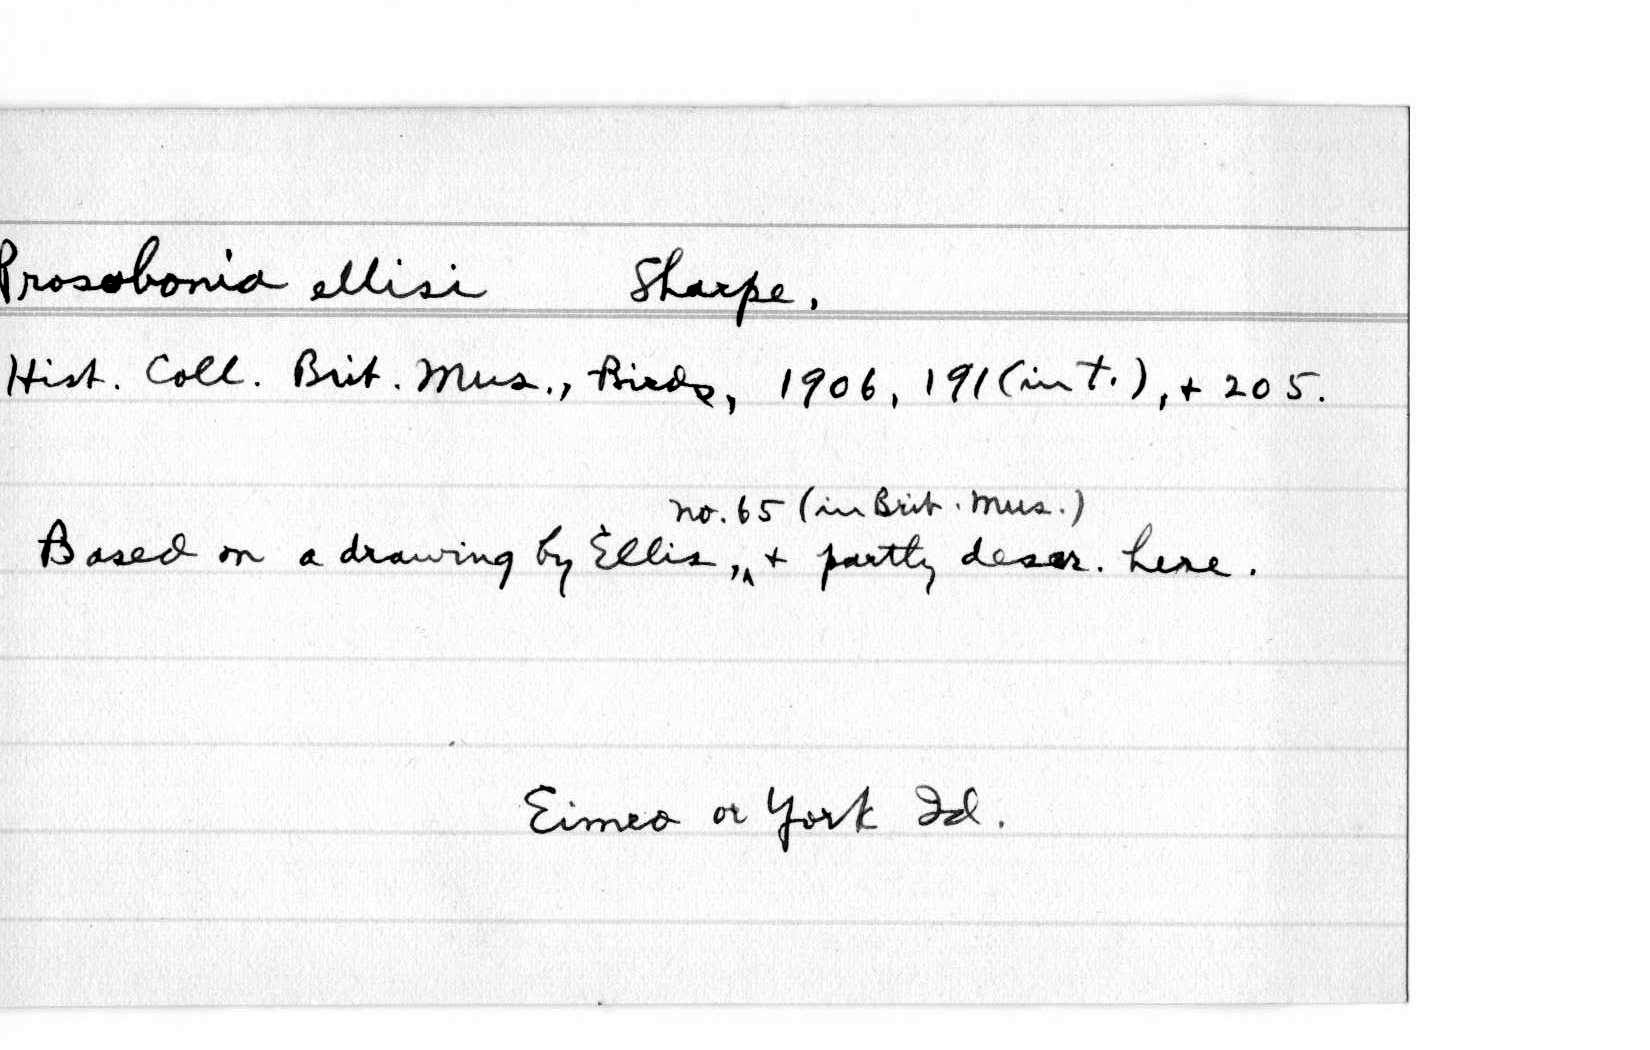 Prosobonia ellisi Sharpe.
Hist. Coll. Brit. Mus., Birds, 1906, 191 (in t.), + 205.
no. 65 (in Brit. Mus.)
Based on a drawing by Ellis, ^ + partly descr. here.
Eimeo or York Id.